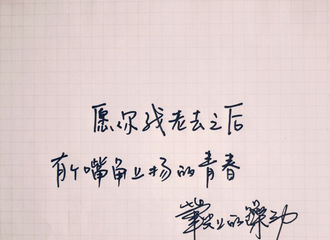 愿你我老去之后
有个嘴角上扬的青春